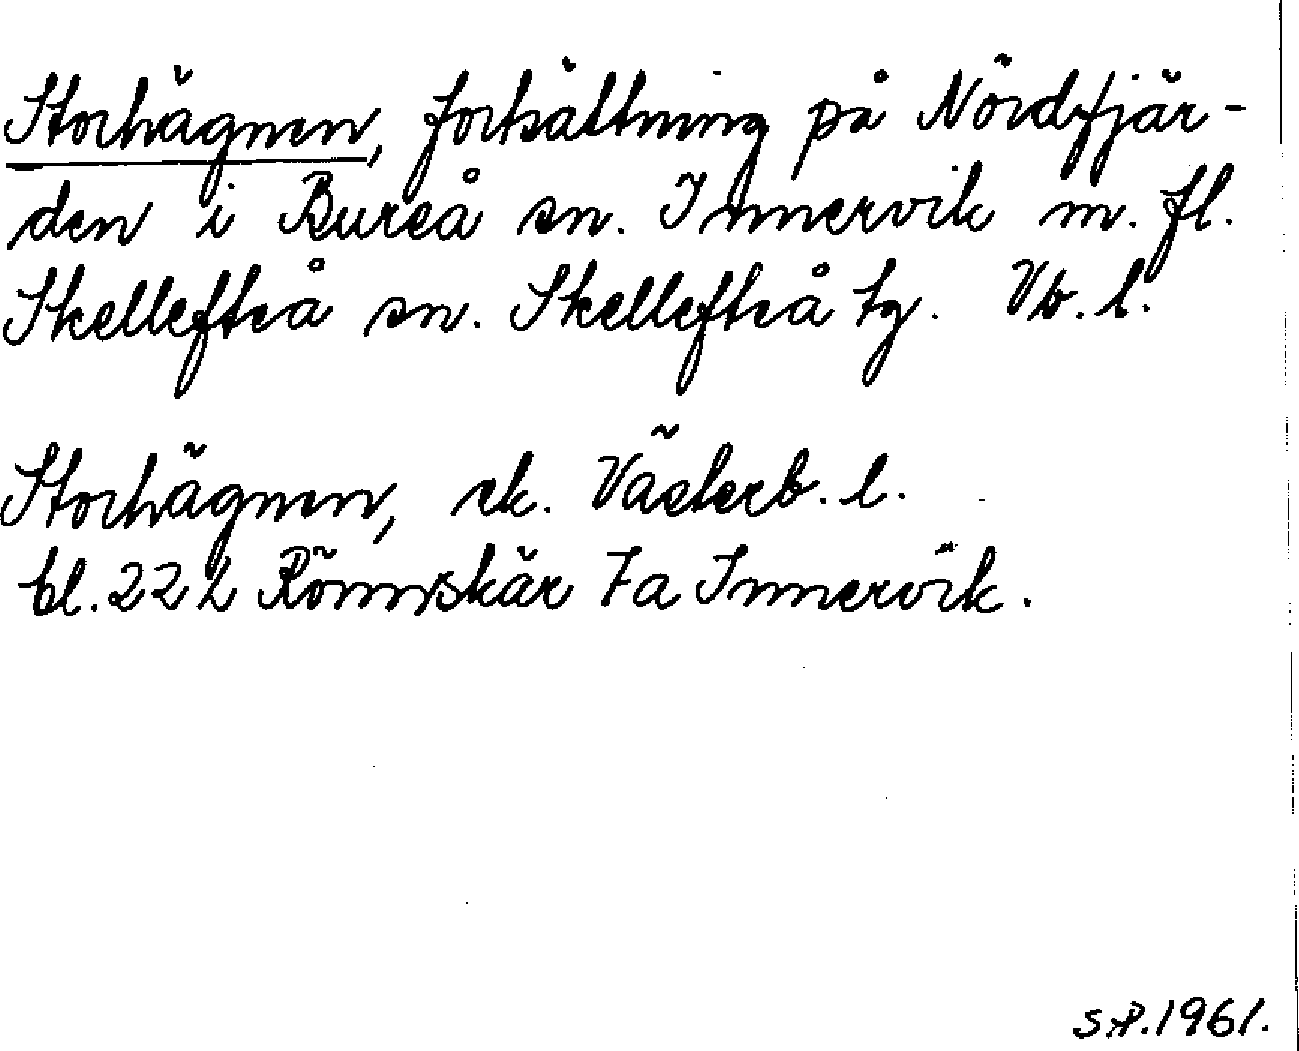 Storhägnen, fortsättning på Nördfjär-
den i Bureå sn. Innervik m. fl.
Skellefteå sn. Skellefteå tg. Vb. l.
Storhägnen, ek. Västerb. l.
bl. 222 Rönnskär 7a Innervik.
S.P. 1961.